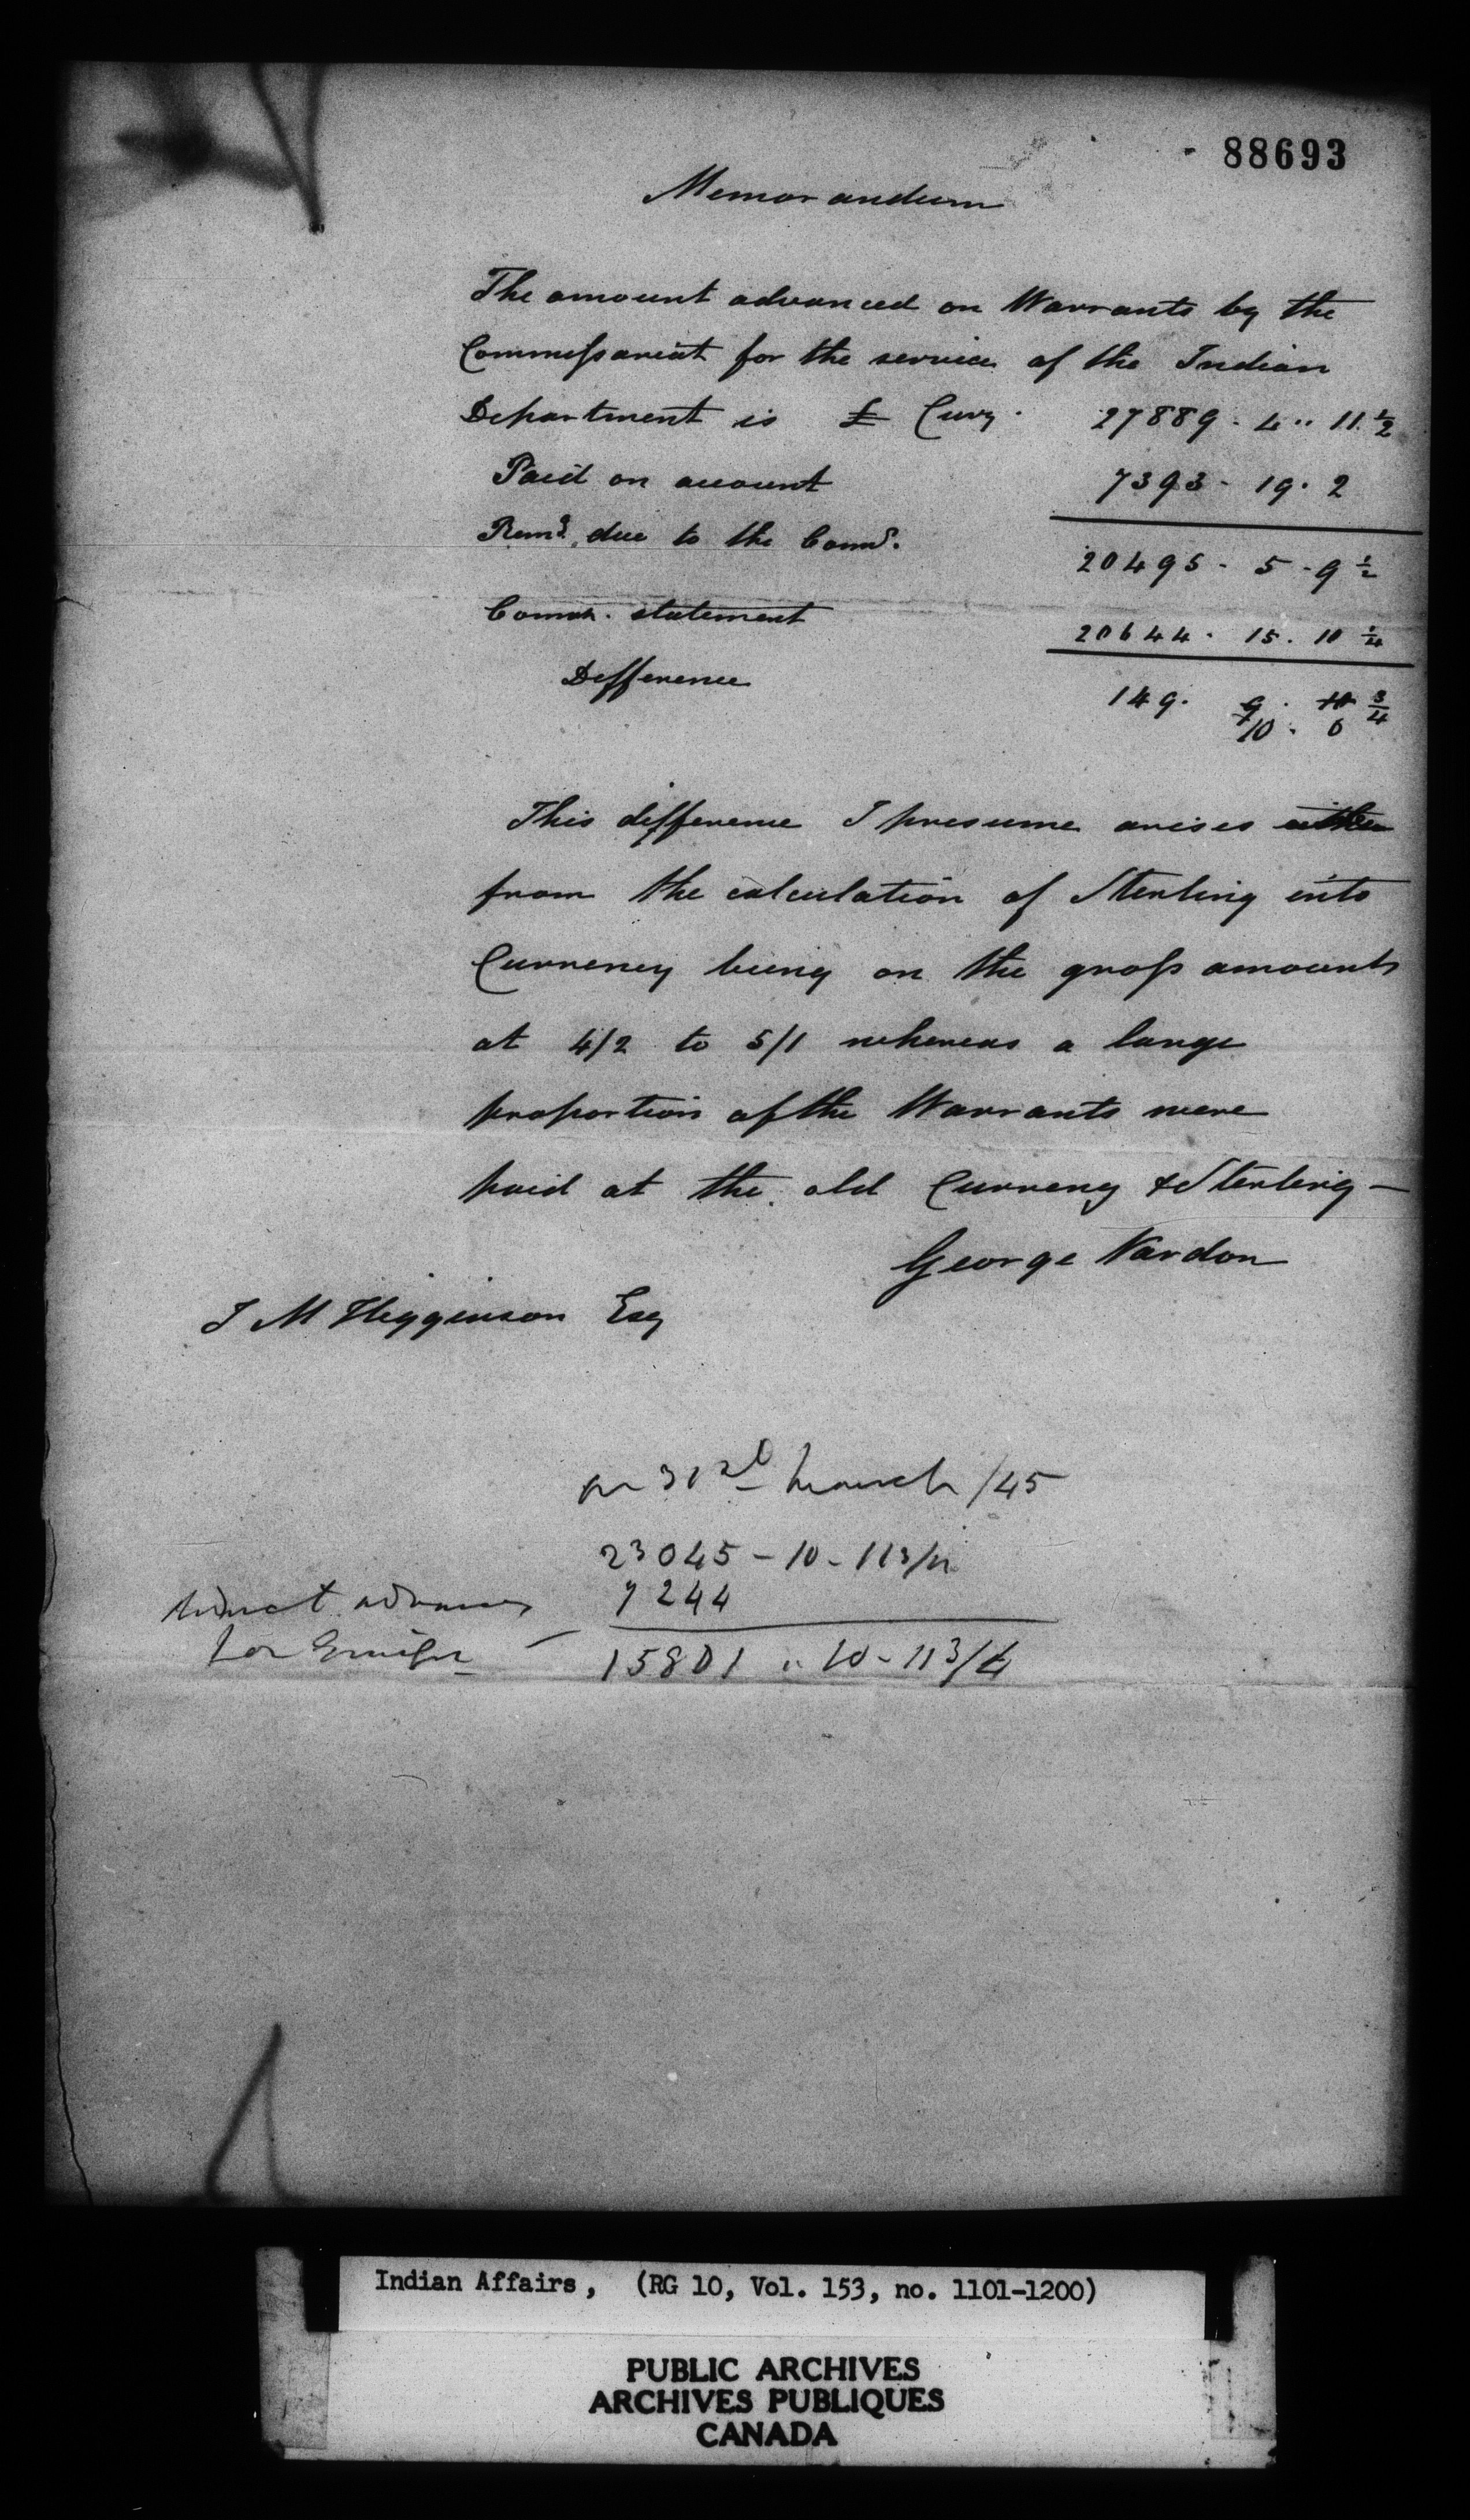 88693
Memorandum
The amount advanced on Warrants by the
Commissariat for the service of the Indian
Department is £ Curry. 27889 - 4 .. 11. 1/2
Paid on account 7393 - 19 . 2
Remg. due to the Comst. 20495 - 5 - 9 1/2
statement 20644 . 15 . 10 1/4
Difference 149. 9 . 10 3/4
10 . 0
This difference I presume arises either
from the calculation of Sterling into
Currency being on the gross amounts
at 4/2 to 5/1 whereas a large
proportion of the Warrants were
paid at the old Currency & Sterling -
George Vardon
J M Higginson Esq
March /45
23045 - 10 - 11 3/4
7244
15801 .. 10 - 11 3/4
Indian Affairs, (RG 10, Vol. 153, no. 1101-1200)
PUBLIC ARCHIVES
ARCHIVES PUBLIQUES
CANADA